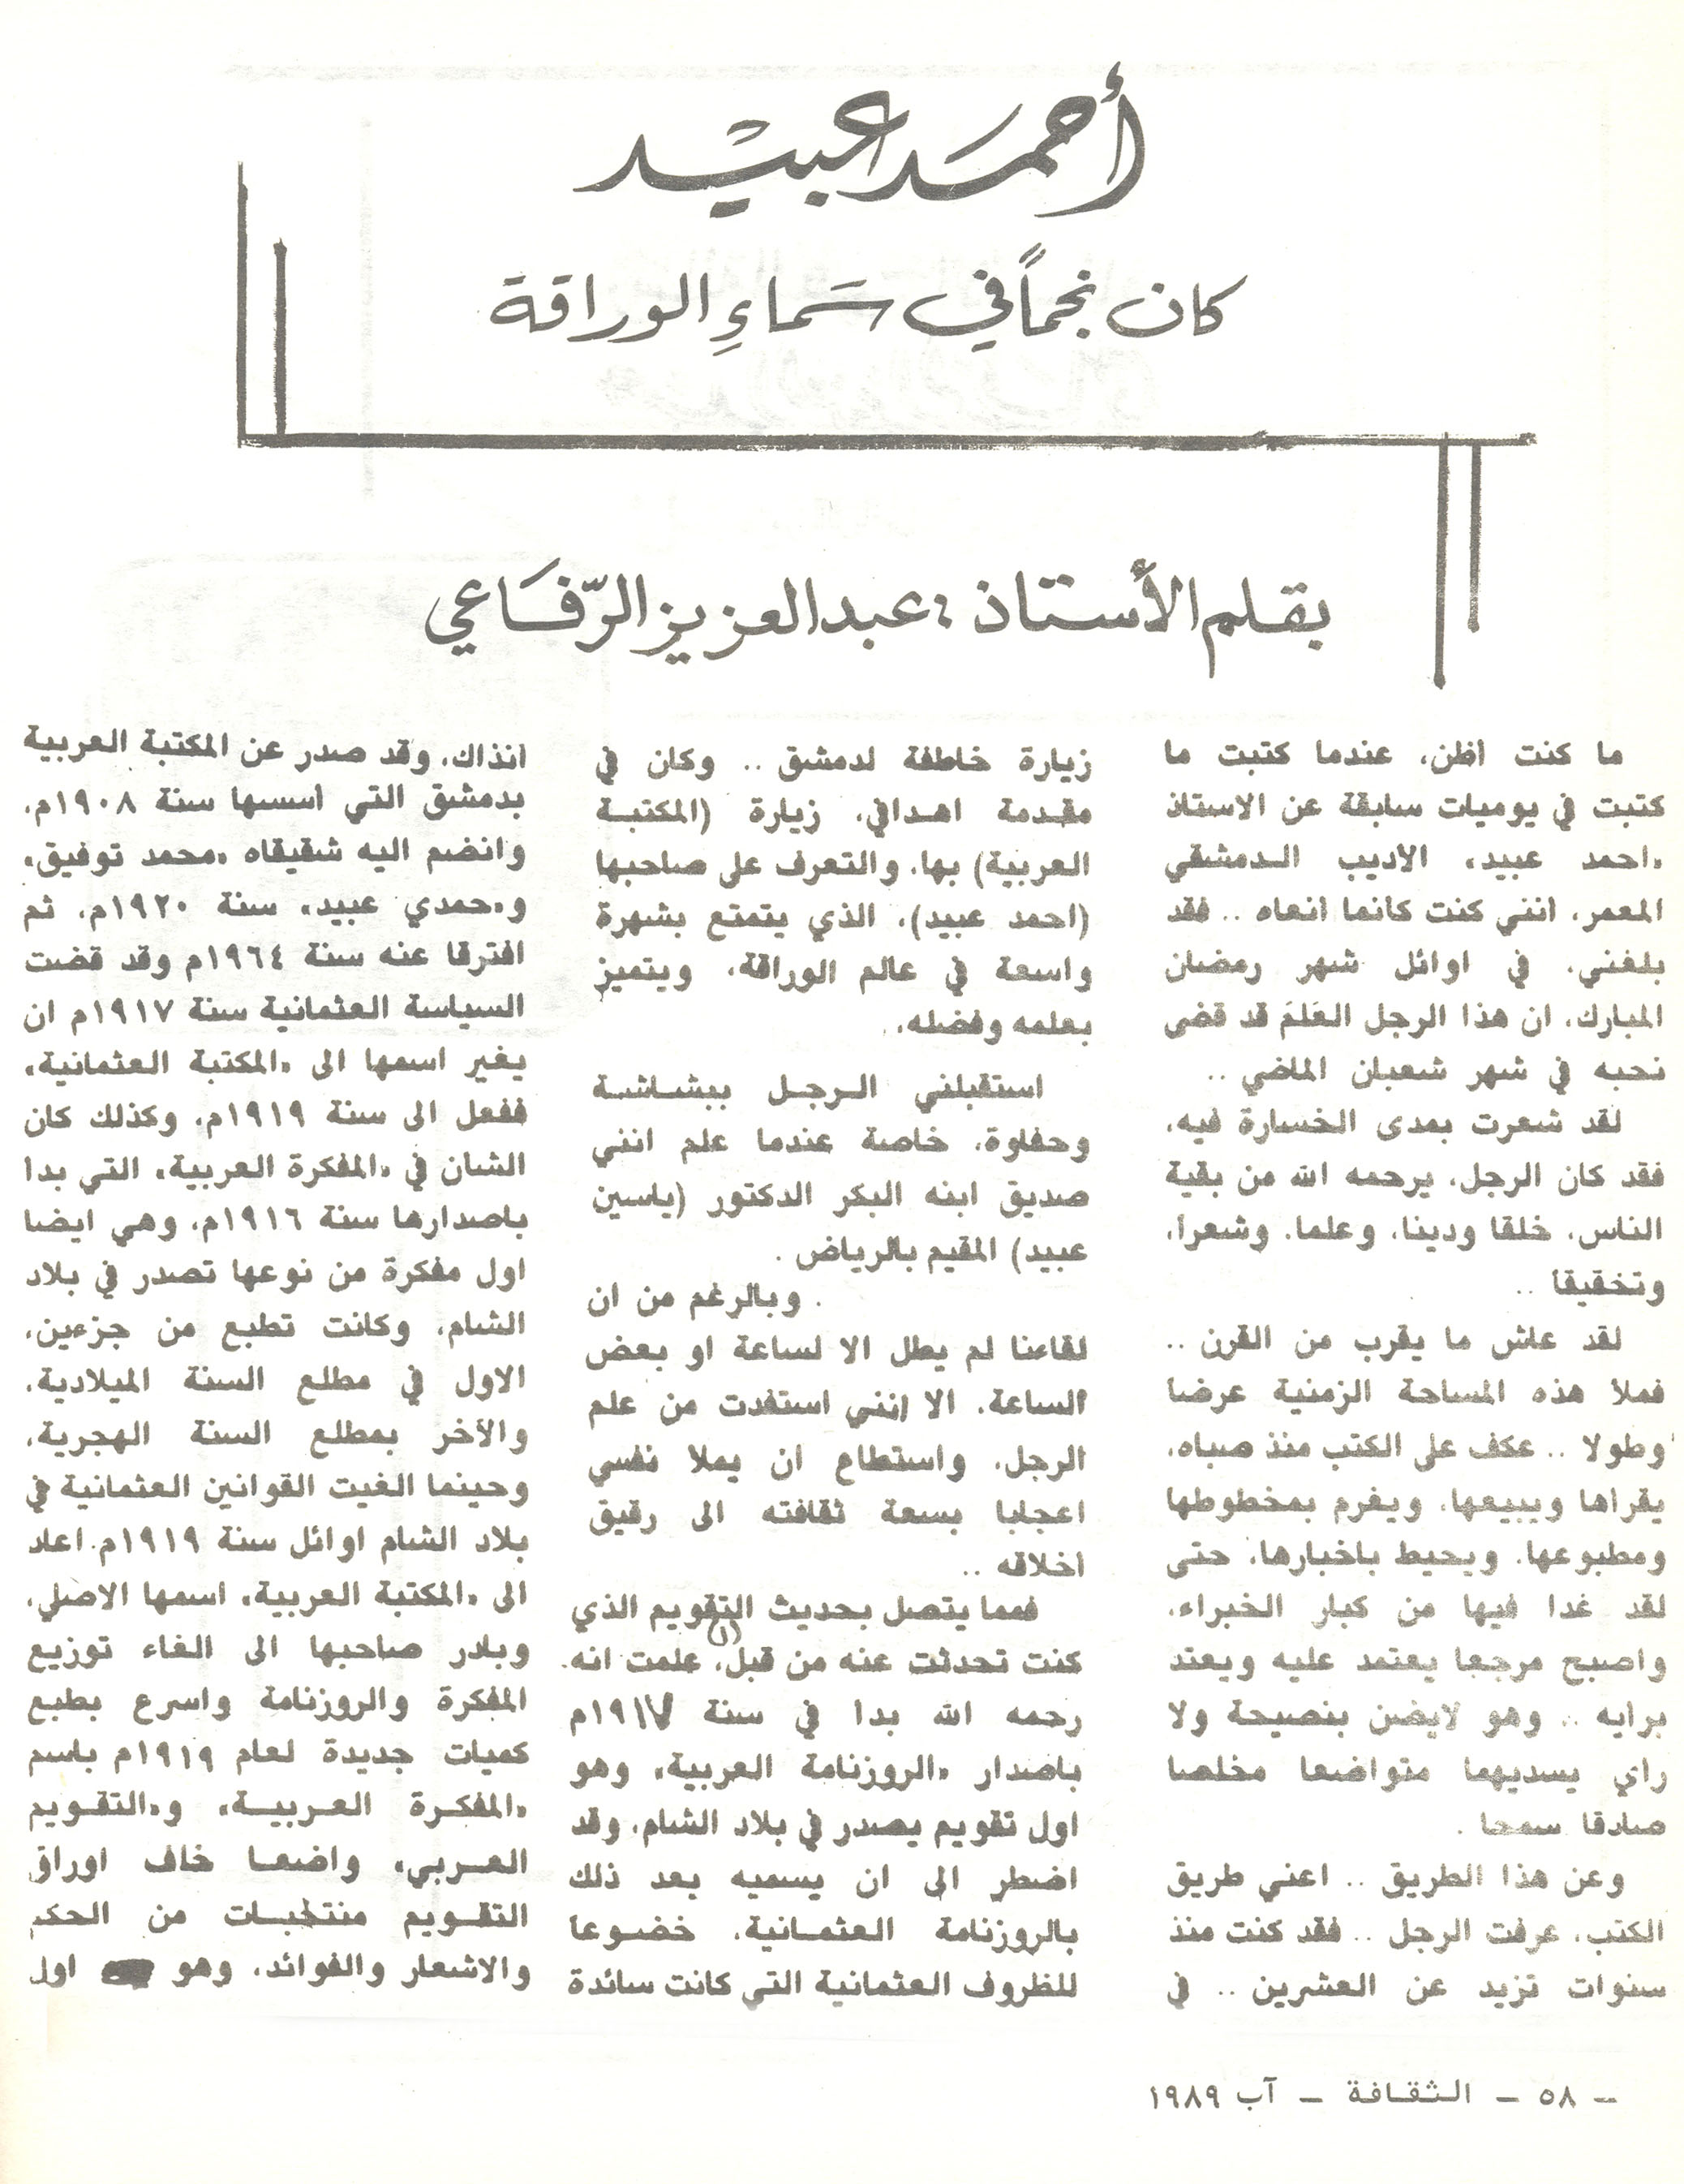 أحمد عبيد
كان نجماً في سماءِ الوراقة
بقلم الأستاذ : عبد العزيز الرّفاعي
ما كنت اظن، عندما كتبت ما
كتبت في يوميات سابقة عن الاستاذ
«احمد عبيد» الاديب الدمشقي
المعمر، انني كنت كانما انعاه .. فقد
بلغني، في اوائل شهر رمضان
المبارك، ان هذا الرجل العَلَمَ قد قضى
نحبه في شهر شعبان الماضي ..
لقد شعرت بمدى الخسارة فيه،
فقد كان الرجل، يرحمه الله من بقية
الناس، خلقا ودينا، وعلما، وشعراً،
وتحقيقا ..
لقد عاش ما يقرب من القرن ..
فملأ هذه المساحة الزمنية عرضا
وطولا .. عكف على الكتب منذ صباه،
يقراها ويبيعها، ويغرم بمخطوطها
ومطبوعها، ويحيط باخبارها، حتى
لقد غدا فيها من كبار الخبراء،
واصبح مرجعا يعتمد عليه ويعتد
برايه .. وهو لايضن بنصيحة ولا
راي يسديهما متواضعا مخلصا
صادقا سمحا .
وعن هذا الطريق .. اعني طريق
الكتب، عرفت الرجل .. فقد كنت منذ
سنوات تزيد عن العشرين .. في
زيارة خاطفة لدمشق .. وكان في
مقدمة اهدافي، زيارة (المكتبة
العربية) بها، والتعرف على صاحبها
(احمد عبيد)، الذي يتمتع بشهرة
واسعة في عالم الوراقة، ويتميز
بعلمه وفضله،
استقبلني الرجل ببشاشة
وحفاوة، خاصة عندما علم انني
صديق ابنه البكر الدكتور (ياسين
عبيد) المقيم بالرياض .
. وبالرغم من ان
لقاءنا لم يطل الا لساعة او بعض
الساعة، الا إنني استفدت من علم
الرجل، واستطاع ان يملا نفسي
اعجابا بسعة ثقافته الى رقيق
اخلاقه ..
فمما يتصل بحديث التقويم الذي
كنت تحدثت عنه من قبل(١)، علمت انه
رحمه الله بدا في سنة ١٩١٧م
باصدار «الروزنامة العربية» وهو
اول تقويم يصدر في بلاد الشام، وقد
اضطر الى ان يسميه بعد ذلك
بالروزنامة العثمانية، خضوعا
للظروف العثمانية التي كانت سائدة
انذاك، وقد صدر عن المكتبة العربية
بدمشق التي اسسها سنة ١٩٠٨م،
وانضم اليه شقيقاه «محمد توفيق»
و«حمدي عبيد» سنة ١٩٢٠م، ثم
افترقا عنه سنة ١٩٦٤م وقد قضت
السياسة العثمانية سنة ١٩١٧م ان
يغير اسمها الى «المكتبة العثمانية»
ففعل الى سنة ١٩١٩م، وكذلك كان
الشان في «المفكرة العربية» التي بدا
باصدارها سنة ١٩١٦م، وهي ايضا
اول مفكرة من نوعها تصدر في بلاد
الشام، وكانت تطبع من جزءين،
الاول في مطلع السنة الميلادية،
والآخر بمطلع السنة الهجرية،
وحينما الغيت القوانين العثمانية في
بلاد الشام اوائل سنة ١٩١٩م اعاد
الى «المكتبة العربية» اسمها الاصلي،
وبادر صاحبها الى الغاء توزيع
المفكرة والروزنامة واسرع بطبع
كميات جديدة لعام ١٩١٩م باسم
«المفكرة العربية» و«التقويم
العربي» واضعا خلف اوراق
التقويم منتخبات من الحكم
والاشعار والفوائد، وهو اول
– ٥٨ – الثقافة – آب ١٩٨٩